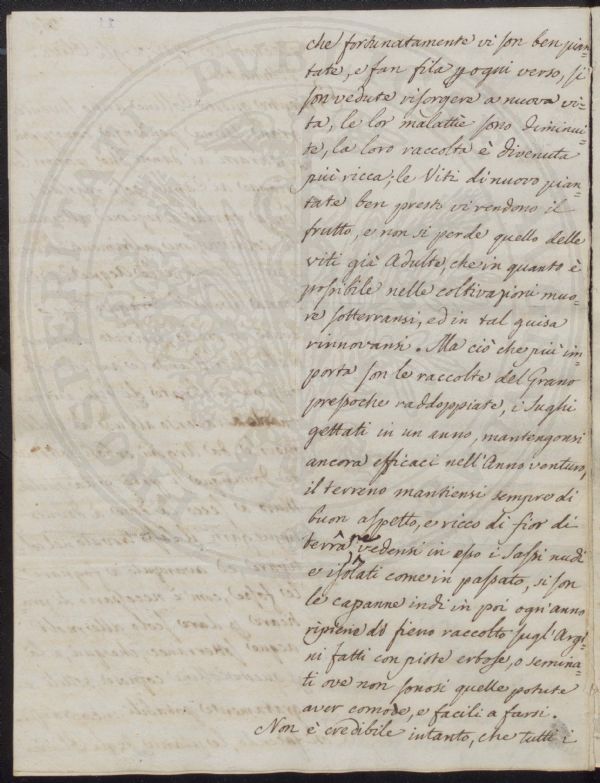 che fortunatamente vi son ben pian=
tate, e fan fila p ogni verso, si
son vedute risorgere a nuova vi=
ta, le lor malattie sono diminui=
te, la loro raccolta è divenuta
più ricca; le Viti di nuovo pian=
tate ben presto vi rendono il
frutto, e non si perde quello delle
viti già Adulte, che in quanto è
possibile nelle coltivazioni nuo=
ve sotterransi, ed in tal guisa
rinnovansi. Ma ciò che più im=
porta son le raccolte del Grano
pressoche raddoppiate, i Sughi
gettati in un anno, mantengonsi
ancora efficaci nell'Anno venturo,
il terreno mantiensi sempre di
buon aspetto, e ricco di fior di
terra, ne vedensi in esso i Sassi nudi
e isolati come in passato, si son
le capanne indi in poi ogn'anno
ripiene di fieno raccolto sugl'Argi=
ni fatti con piote erbose, o semina=
ti ove non sonosi quelle potute
aver comode, e facili a farsi.
Non è credibile intanto, che tutti i